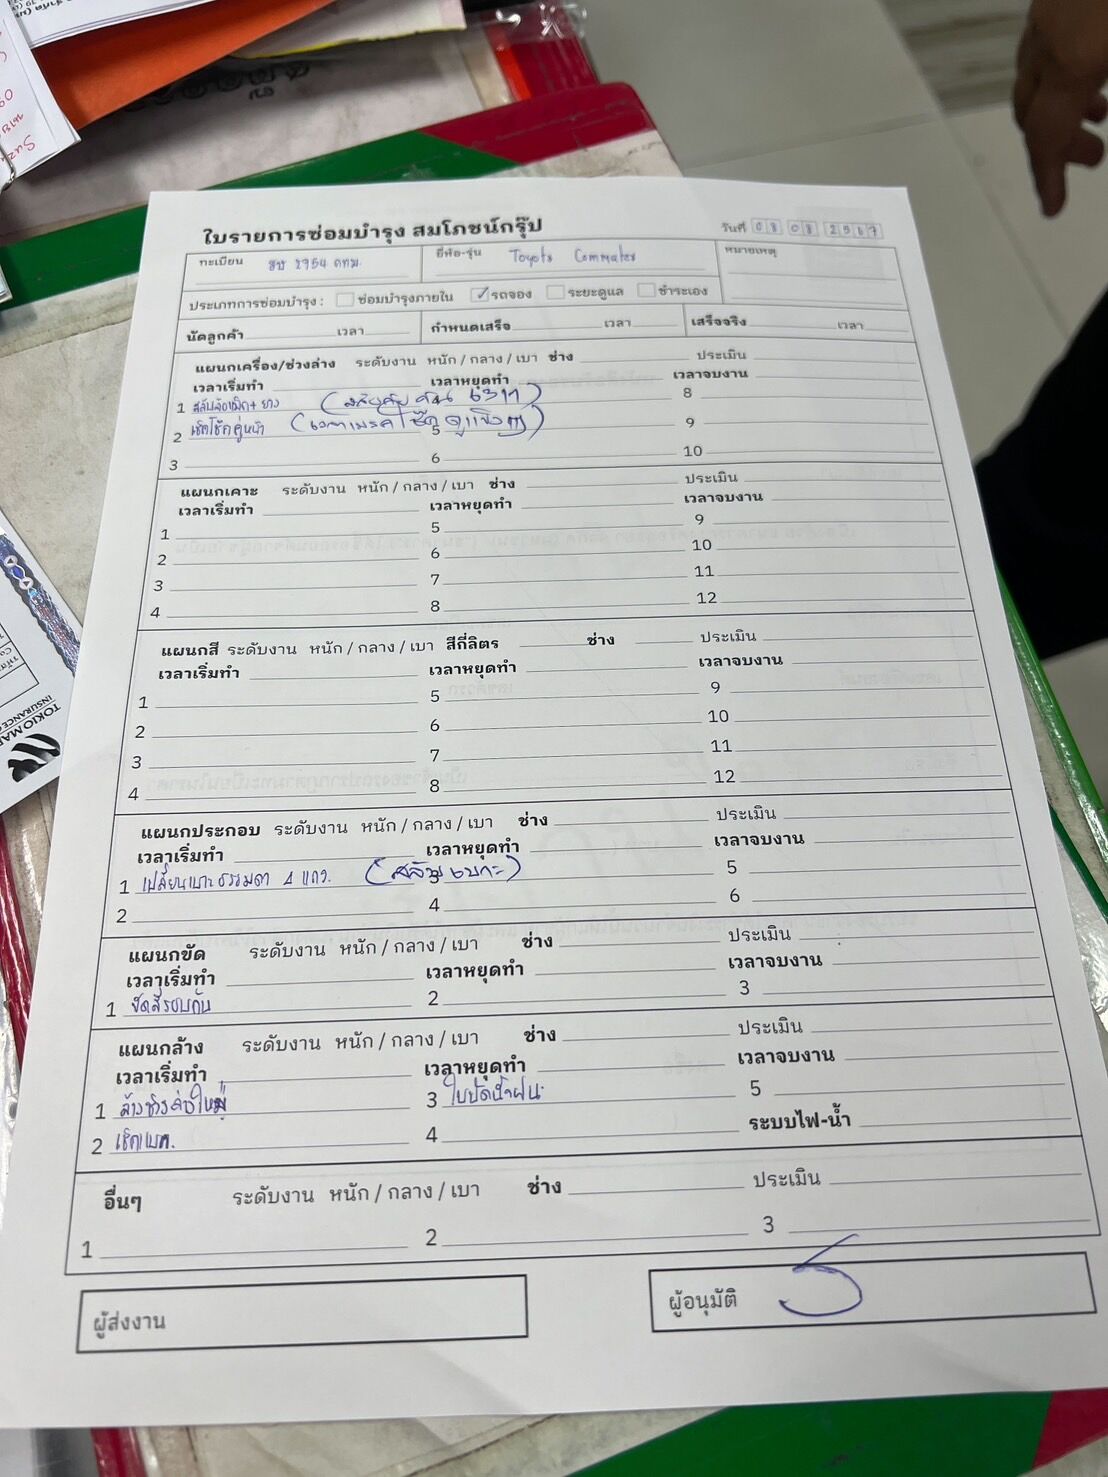 ใบรายการซ่อมบำรุง สมโภชน์กรุ๊ป
วันที่ 08 08 2567
ทะเบียน 2754 กทม. ยี่ห้อ-รุ่น Toyota Commuter หมายเหตุ
ประเภทการซ่อมบำรุง : ซ่อมบำรุงภายใน ✓ รถจอง ระยะดูแล ชำระเอง
นัดลูกค้า เวลา กำหนดเสร็จ เวลา เสร็จจริง เวลา
แผนกเครื่อง/ช่วงล่าง ระดับงาน หนัก / กลาง / เบา ช่าง ประเมิน
เวลาเริ่มทำ เวลาหยุดทำ เวลาจบงาน
1 สลับล้อแม็ก+ยาง (สลับกับคัน ) 8
2 เช็คโช้คคู่หน้า 5 9
3 6 10
แผนกเคาะ ระดับงาน หนัก / กลาง / เบา ช่าง ประเมิน
เวลาเริ่มทำ เวลาหยุดทำ เวลาจบงาน
1 5 9
2 6 10
3 7 11
4 8 12
แผนกสี ระดับงาน หนัก / กลาง / เบา สีกี่ลิตร ช่าง ประเมิน
เวลาเริ่มทำ เวลาหยุดทำ เวลาจบงาน
1 5 9
2 6 10
3 7 11
4 8 12
แผนกประกอบ ระดับงาน หนัก / กลาง / เบา ช่าง ประเมิน
เวลาเริ่มทำ เวลาหยุดทำ เวลาจบงาน
1 เปลี่ยนเบาะธรรมดา 4 แถว. (สลับเบาะ) 3 5
2 4 6
แผนกขัด ระดับงาน หนัก / กลาง / เบา ช่าง ประเมิน
เวลาเริ่มทำ เวลาหยุดทำ เวลาจบงาน
1 ขัดสีรอบคัน 2 3
แผนกล้าง ระดับงาน หนัก / กลาง / เบา ช่าง ประเมิน
เวลาเริ่มทำ เวลาหยุดทำ เวลาจบงาน
1 ล้างช่วงล่างใหม่ 3 ใบปัดน้ำฝน 5
2 เช็คแบต. 4 ระบบไฟ-น้ำ
อื่นๆ ระดับงาน หนัก / กลาง / เบา ช่าง ประเมิน
1 2 3
ผู้ส่งงาน ผู้อนุมัติ
TOKIO MAR
INSURANCE